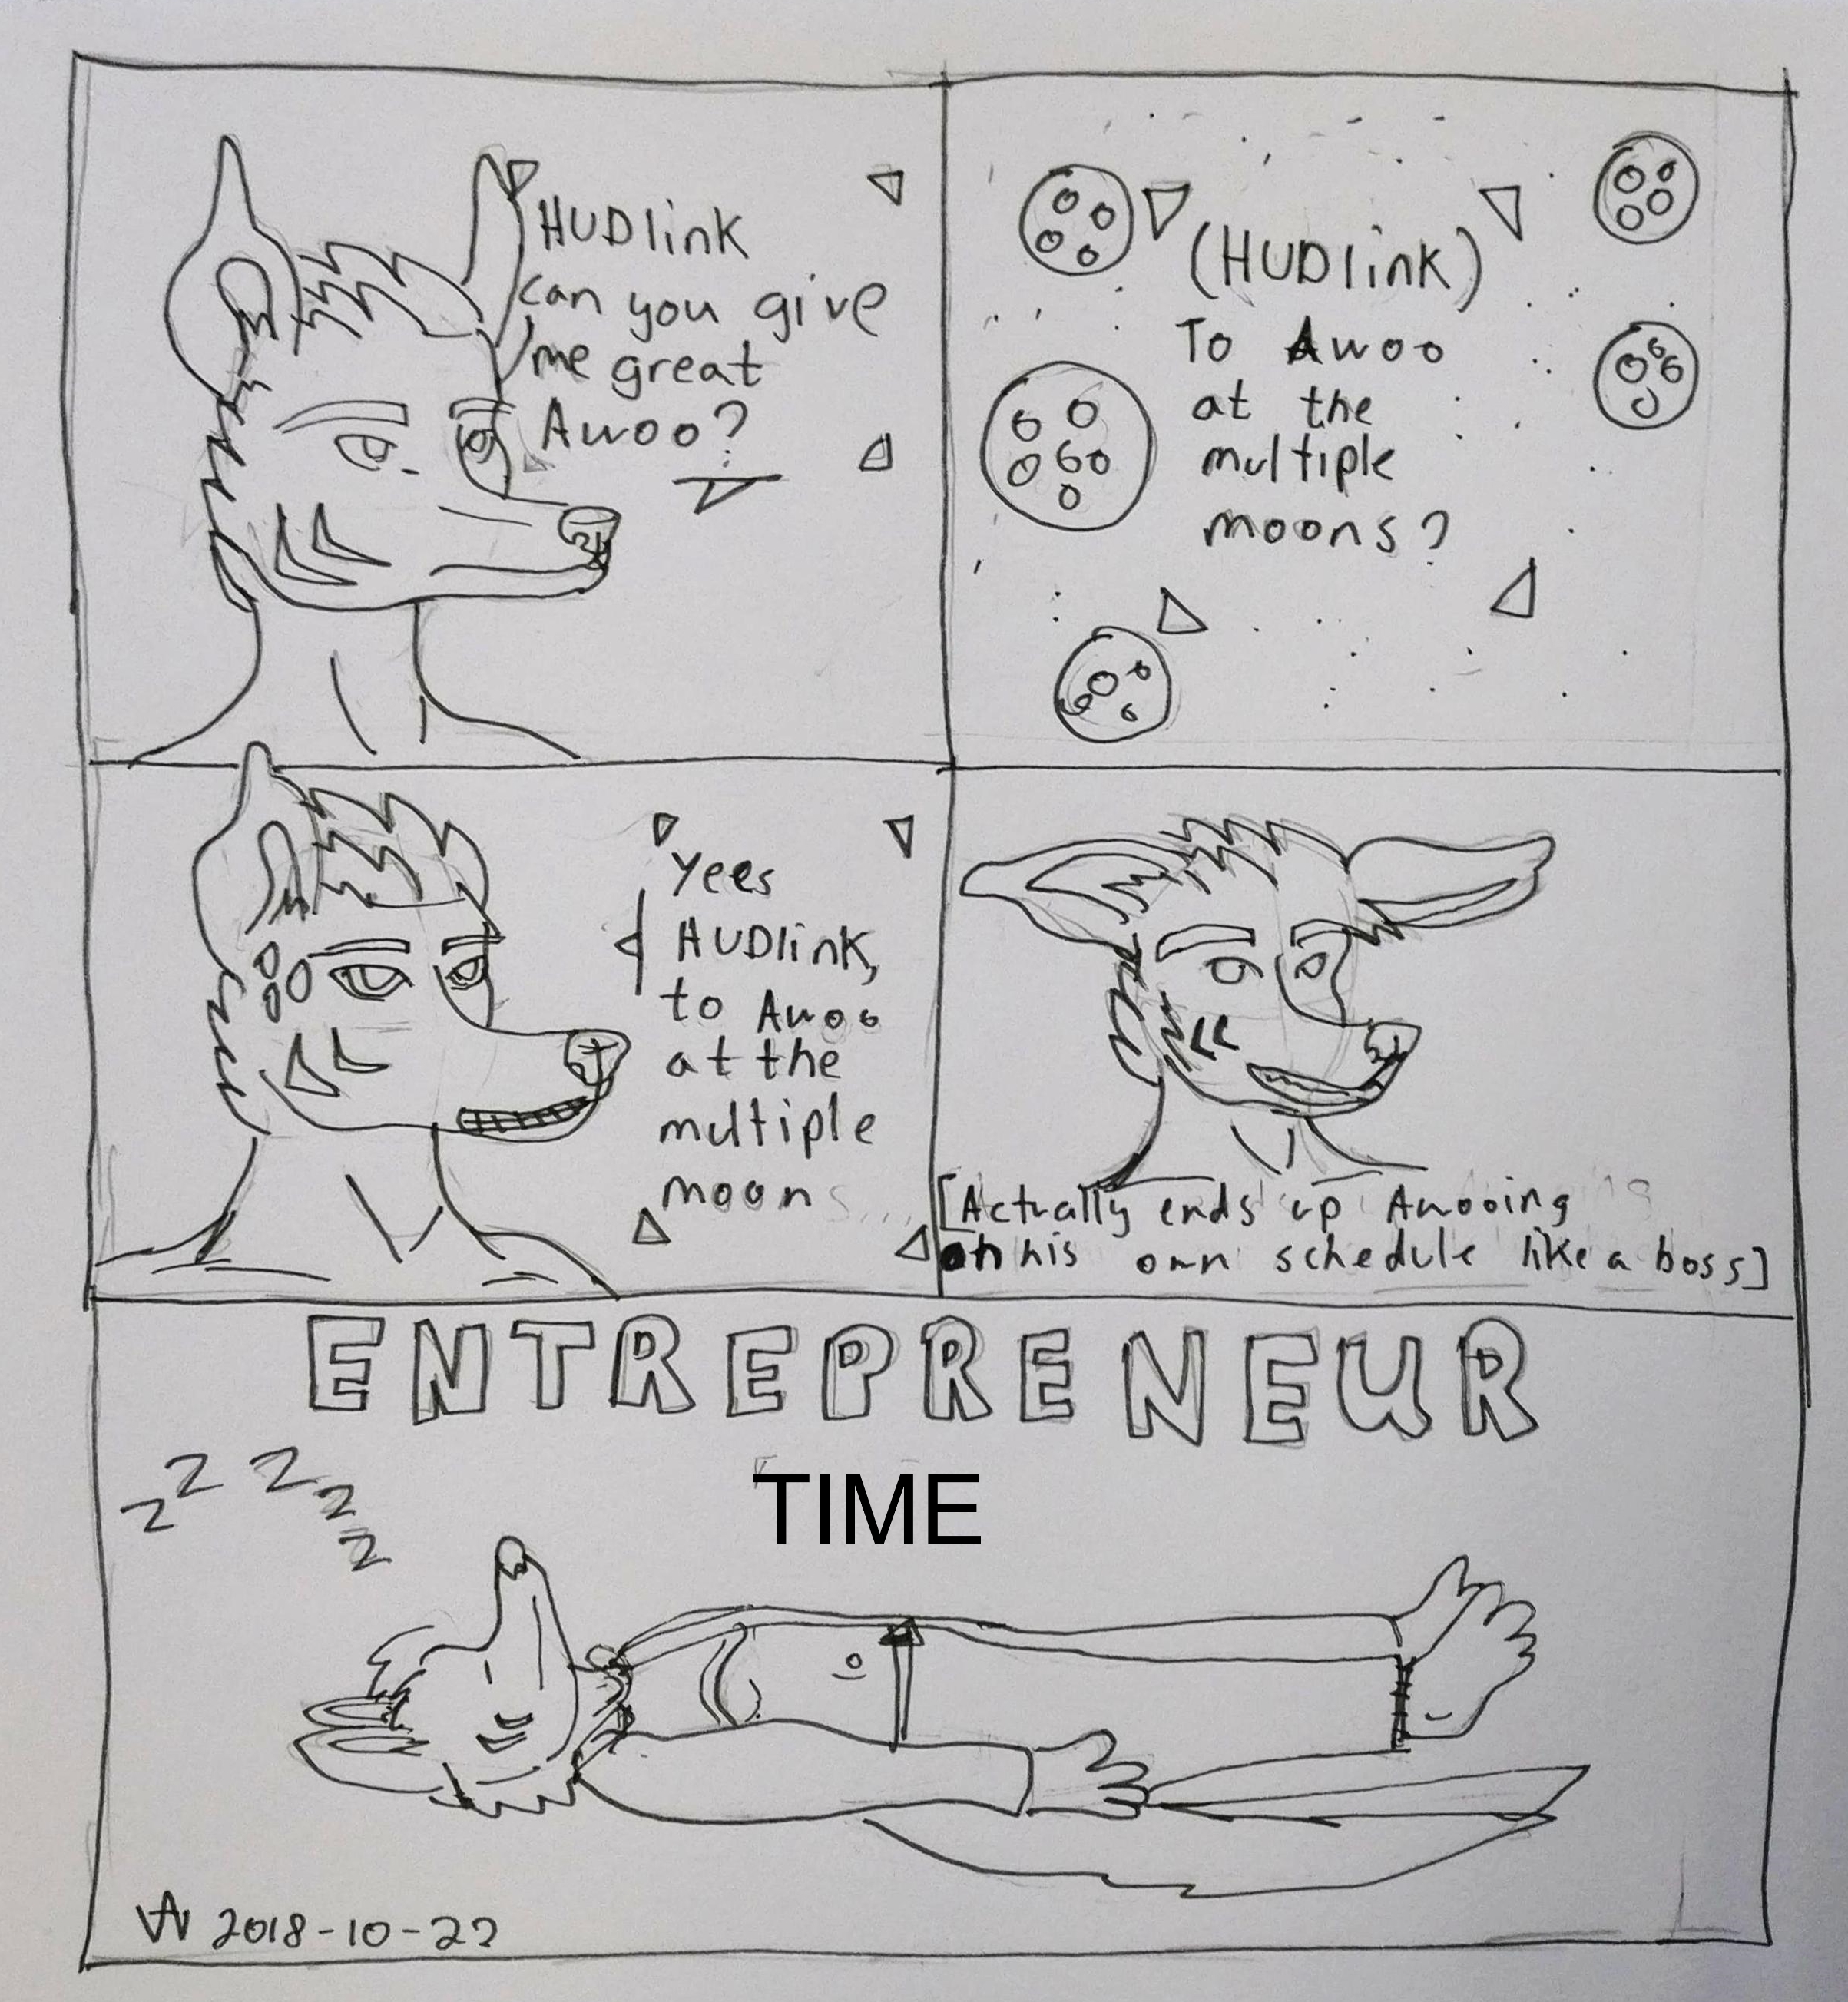 HUDlink
can you give
me great
Awoo?
(HUDlink)
To Awoo
at the
multiple
moons?
Yees
HUDlink,
to Awoo
at the
multiple
moons...
[Actually ends up Awooing
on his own schedule like a boss]
ENTREPRENEUR
TIME
z z z z z
2018-10-22